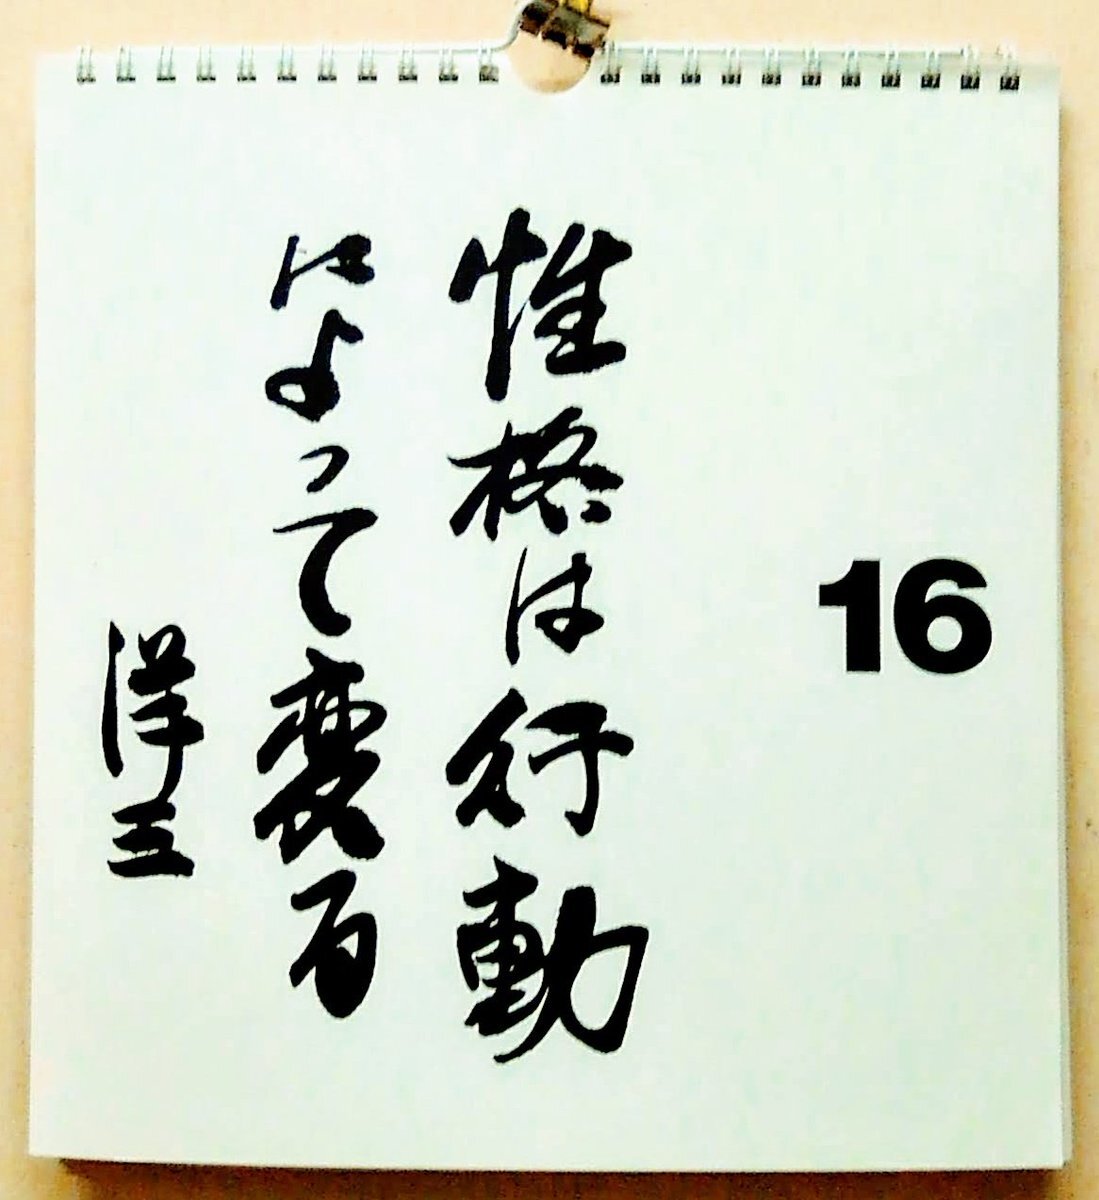 16
性格は行動
によって変る
洋三